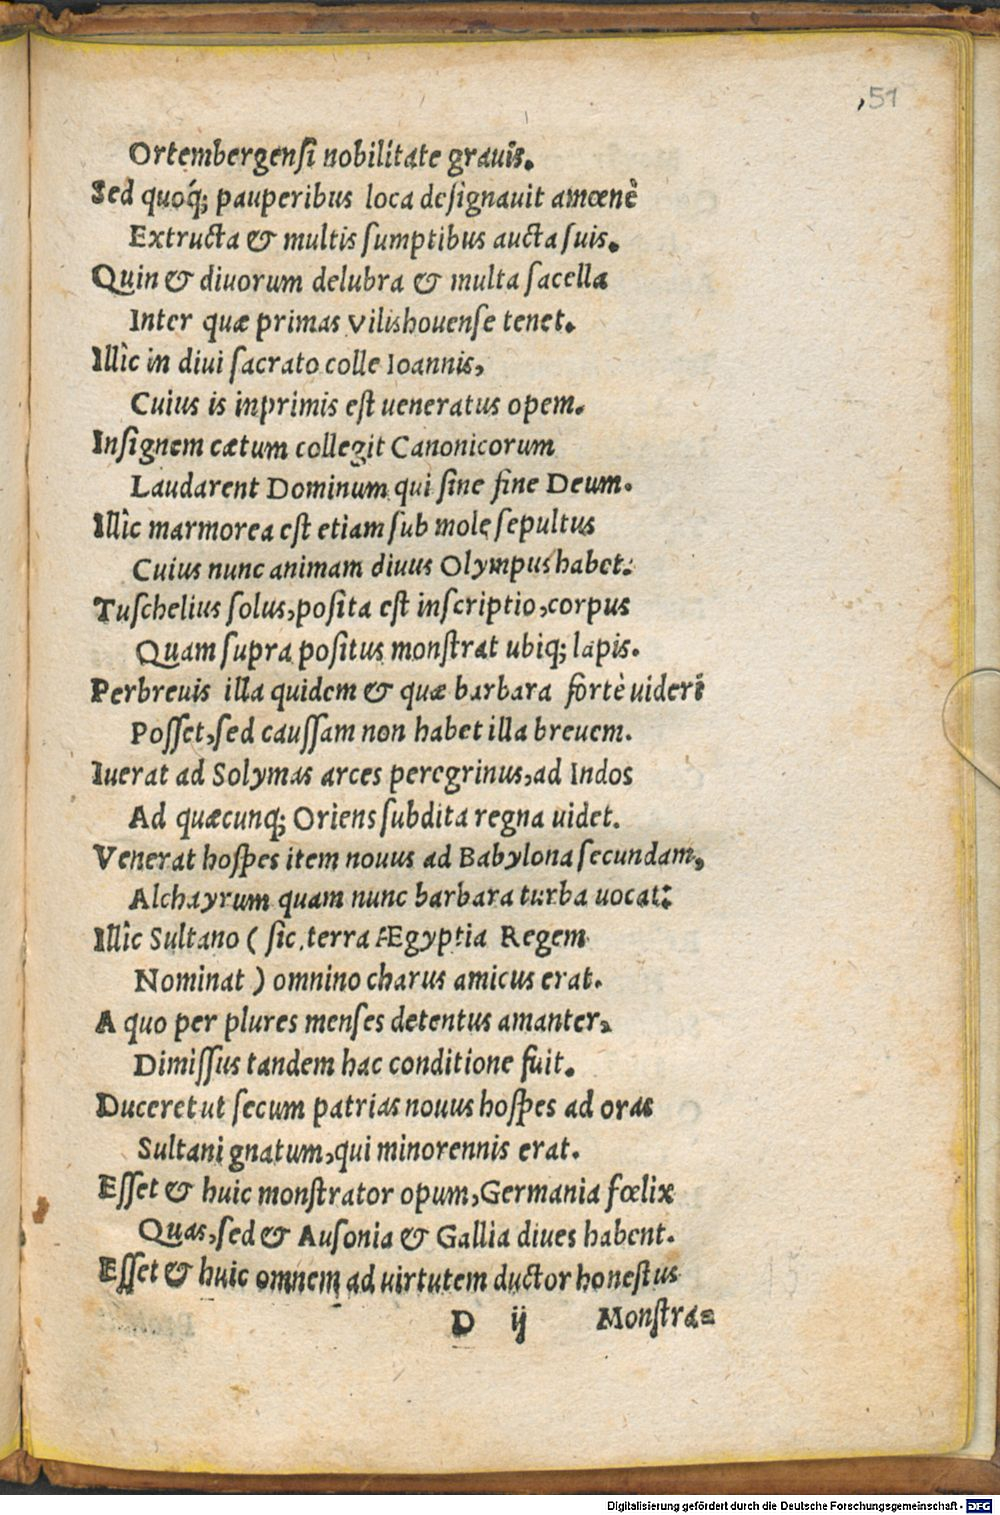 ,51
Ortembergensi nobilitate grauis.
Sed quoq́; pauperibus loca designauit amœnè
Extructa & multis sumptibus aucta suis.
Quin & diuorum delubra & multa sacella
Inter quæ primas Vilishouense tenet.
Illîc in diui sacrato colle Ioannis,
Cuius is inprimis est ueneratus opem.
Insignem cœtum collegit Canonicorum
Laudarent Dominum qui sine fine Deum.
Illîc marmorea est etiam sub mole sepultus
Cuius nunc animam diuus Olympus habet:
Tuschelius solus, posita est inscriptio, corpus
Quam supra positus monstrat ubiq; lapis.
Perbreuis illa quidem & quæ barbara fortè uideri
Posset, sed caussam non habet illa breuem.
Iuerat ad Solymas arces peregrinus, ad Indos
Ad quæcunq; Oriens subdita regna uidet.
Venerat hospes item nouus ad Babylona secundam,
Alchayrum quam nunc barbara turba uocat:
Illîc Sultano ( sic terra Ægyptia Regem
Nominat ) omnino charus amicus erat.
A quo per plures menses detentus amanter,
Dimissus tandem hac conditione fuit.
Duceret ut secum patrias nouus hospes ad oras
Sultani gnatum, qui minorennis erat.
Esset & huic monstrator opum, Germania fœlix
Quas, sed & Ausonia & Gallia diues habent.
Esset & huic omnem ad uirtutem ductor honestus
D ij Monstra=
Digitalisierung gefördert durch die Deutsche Forschungsgemeinschaft - DFG